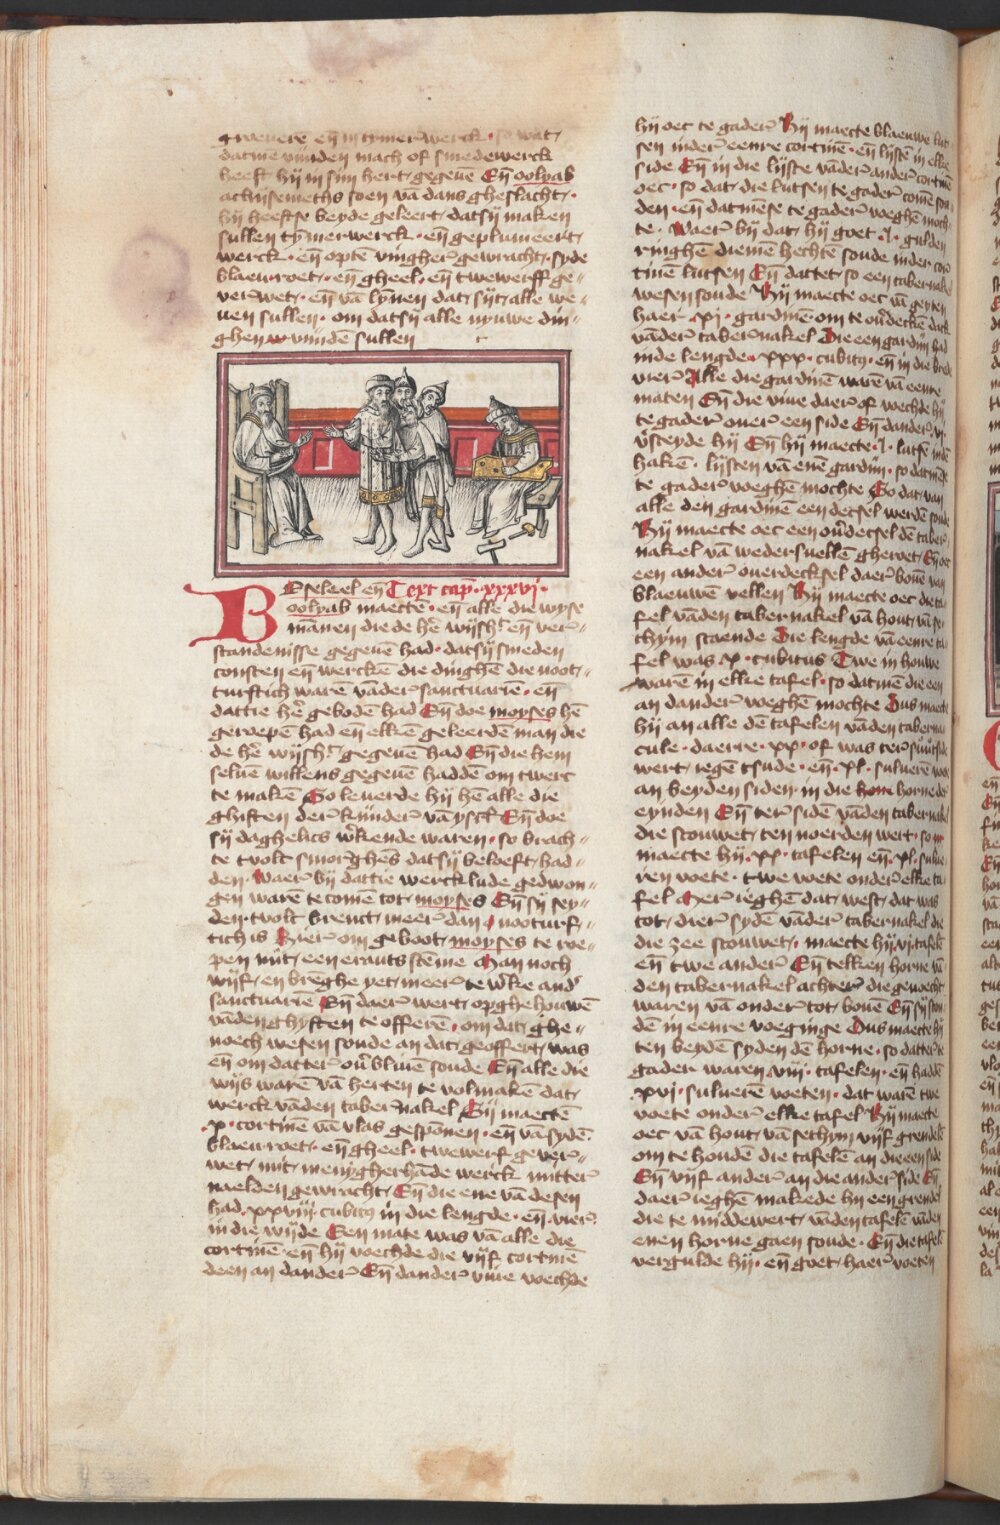 tweuerē eñ in tymmer werck · so wat
datme vinden mach of smedewerck
heeft hij in sijn hert gegeuē Eñ oolyab
achisemeths soen vā dans gheslacht ·
hij heeftse beyde geleert datsij maken
sullen tymerwerck · eñ geplumeert
werck · eñ opten vingher gewracht syde
blaeu root · eñ gheel · eñ twewerff ge=
verwet · eñ vā lynen dat sijt alle we=
uen sullen · om datsij alle nyuwe din=
ghen vindē sullen
BEseleel eñ Text cap̄ · xxxvi ·
oolyab maectē · eñ alle die wyse
mānen die de hē wijsh̄ eñ ver=
standenisse gegeuē had · datsij smeden
consten eñ werckē die dinghē die noot=
turftich warē vāder sanctuariē · eñ
dattie hē gebodē had Eñ doe moyses hē
geroepē had en elkē geleerdē man die
de hē wijsh̄ gegeuē had Eñ die hem
seluē willens gegeuē haddē om twerc
te makē So leuerde hij hē alle die
ghiften der kinder vā ysrl̄ Eñ doe
sij daghelics w̄kende waren · so brach=
te tvolt smorghes datsij beloeft had=
den · waer bij dattie werck lude gedwon=
gen warē te comē tot moyses Eñ sij sey=
den · tvolt brenct meer dan nooturf=
tich is Hier om geboot moyses te roe=
pen mit een erauts stēme Man noch
wijf en brēghe yet meer te w̄ke and̄
sanctuariē Eñ daer wert opghehouwē
vāden ghyften te offerē · om dat ghe=
noech wesen soude an dat geoffert was
eñ om datter ou̅ bliuē soude Eñ alle die
wijs warē vā herten te volmakē dat
werck vāden tabernakel Sij maectē
· x · cortinē vā vlas gespōnen · eñ vā sydē
blaeu root · eñ gheel · twewerf gever=
wet mit menygherhāde werck mitter
naelden gewracht Eñ die ene vā desen
had · xxviij · cubitꝰ in die lengde · eñ vier
in die wijde Een mate was vā alle die
cortinē eñ hij voechde die vijf cortinē
deen an dander Eñ dander viue voechde
hij oec te gader Hij maecte blaeuwe lut
sen inder eenre cortinē · eñ lijstē in elke
side Eñ in die lijste vāder ander cortinē
oec · so dat die lutsen te gader comē sou
den · eñ datmēse te gader voeghē moch=
te · waer bij dat hij goet · l · gulden
ringhē diemē hechtē soude inder cor
tinē lutsen Eñ dattet so een tabernakel
wesen soude Hij maecte oec vā geyten
haer · xi · gardinē · om te ou̅deckē dack
vāder tabernakel Die een gardin had
inde lengde · xxx · cubitꝰ · eñ in die brede
vier Alle die gardinē warē vā eenre
maten Eñ die viue daer of voechde hij
te gader ouer een side Eñ dander · vi ·
v̄steyde hij Eñ hij maecte · l · lutsē mit
hakē · lijsten vā enē gardin · so datmēse
te gader voeghē mochte So dat van
alle den gardinē een decsel werdē soude
Hij maecte oec een ou̅decsel dē taber
nakel vā wedersvellē gheroet Eñ oec
een ander ouerdecksel daer bouē van
blaeuwē vellen Hij maecte oec die ta
fel vāden tabernakel vā hout vā se
thym staende Die lengde vā eenre ta
fel was · x · cubitus Twe in houwe
warē in elke tafel · so datmē die een
an dander voeghē mochte Dus maecte
hij an alle dē tafelen vāden taberna
cule · daerre · xx · of was ter suutside
wert iegē tsude · eñ · xl · suluerē voe
an beyden siden · in die horne der
eynden Eñ ter sidē vāden tabernakel
die scouwet ten noerden wert · so
maecte hij · xx · tafelen eñ · xl · sulue
ren voete · twe voete onder elke ta
fel Mer ieghē dat west dat was
tot dier sydē vāder tabernakel die
die zee scouwet · maecte hij · vi · tafelē
eñ twe ander Eñ telken horne vā
den tabernakel achter die gevoecht
waren vā onder tot bouē Eñ sij ston
dē in eenre voeginge Dus maecte hij
ten beydē syden dē horne · so datter te
gader waren · viij · tafelen · eñ haddē
· xvi · suluerē voeten · dat warē twe
voete onder elke tafel Hij maecte
oec vā hout vā sethym vijf grendelē
om te houdē die tafelē an die een side
Eñ vijf ander an die ander side Eñ
daer ieghē makede hij een grendel
die te middewert vāden tafelē vāden
enen horne gaen soude · Eñ die tafelē
vergulde hij · eñ goet haer voeten